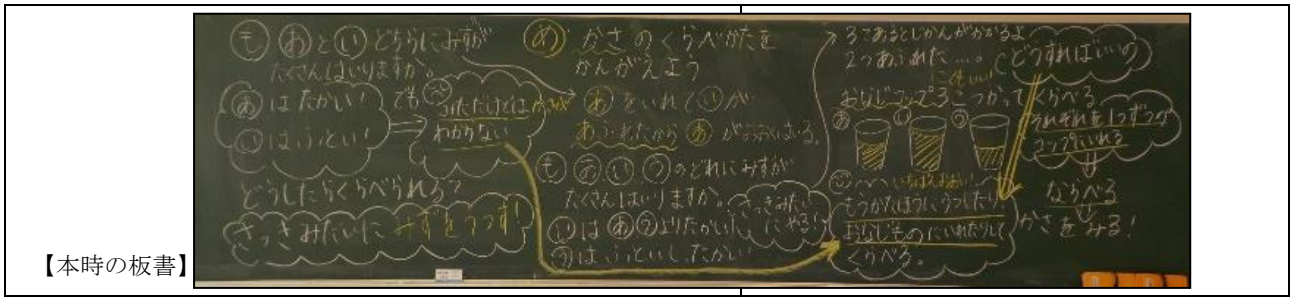 【本時の板書】
も あ と い どちらにみずが
たくさんはいりますか。
あ はたかい!
い はふとい!
でも
みただけでは
わからない
どうしたらくらべられる?
さっきみたいに みずをうつす!
め かさのくらべかたを
かんがえよう
あ をいれて い が
あふれたから あ がおおくはいる。
も あ い う のどれにみずが
たくさんはいりますか。
い は あ う よりたかいし、
う はふといし、たかい
さっきみたい
にやる!
3つあるとじかんがかかるよ
2つあふれた…。
どうすればいいの
おなじコップ3こつかって くらべる
あ い う
それぞれを1つずつの
コップにいれる
ならべる
かさをみる!
いちばんおおい!
もうかたほうにうつしたり
おなじものにいれたりして
くらべる。